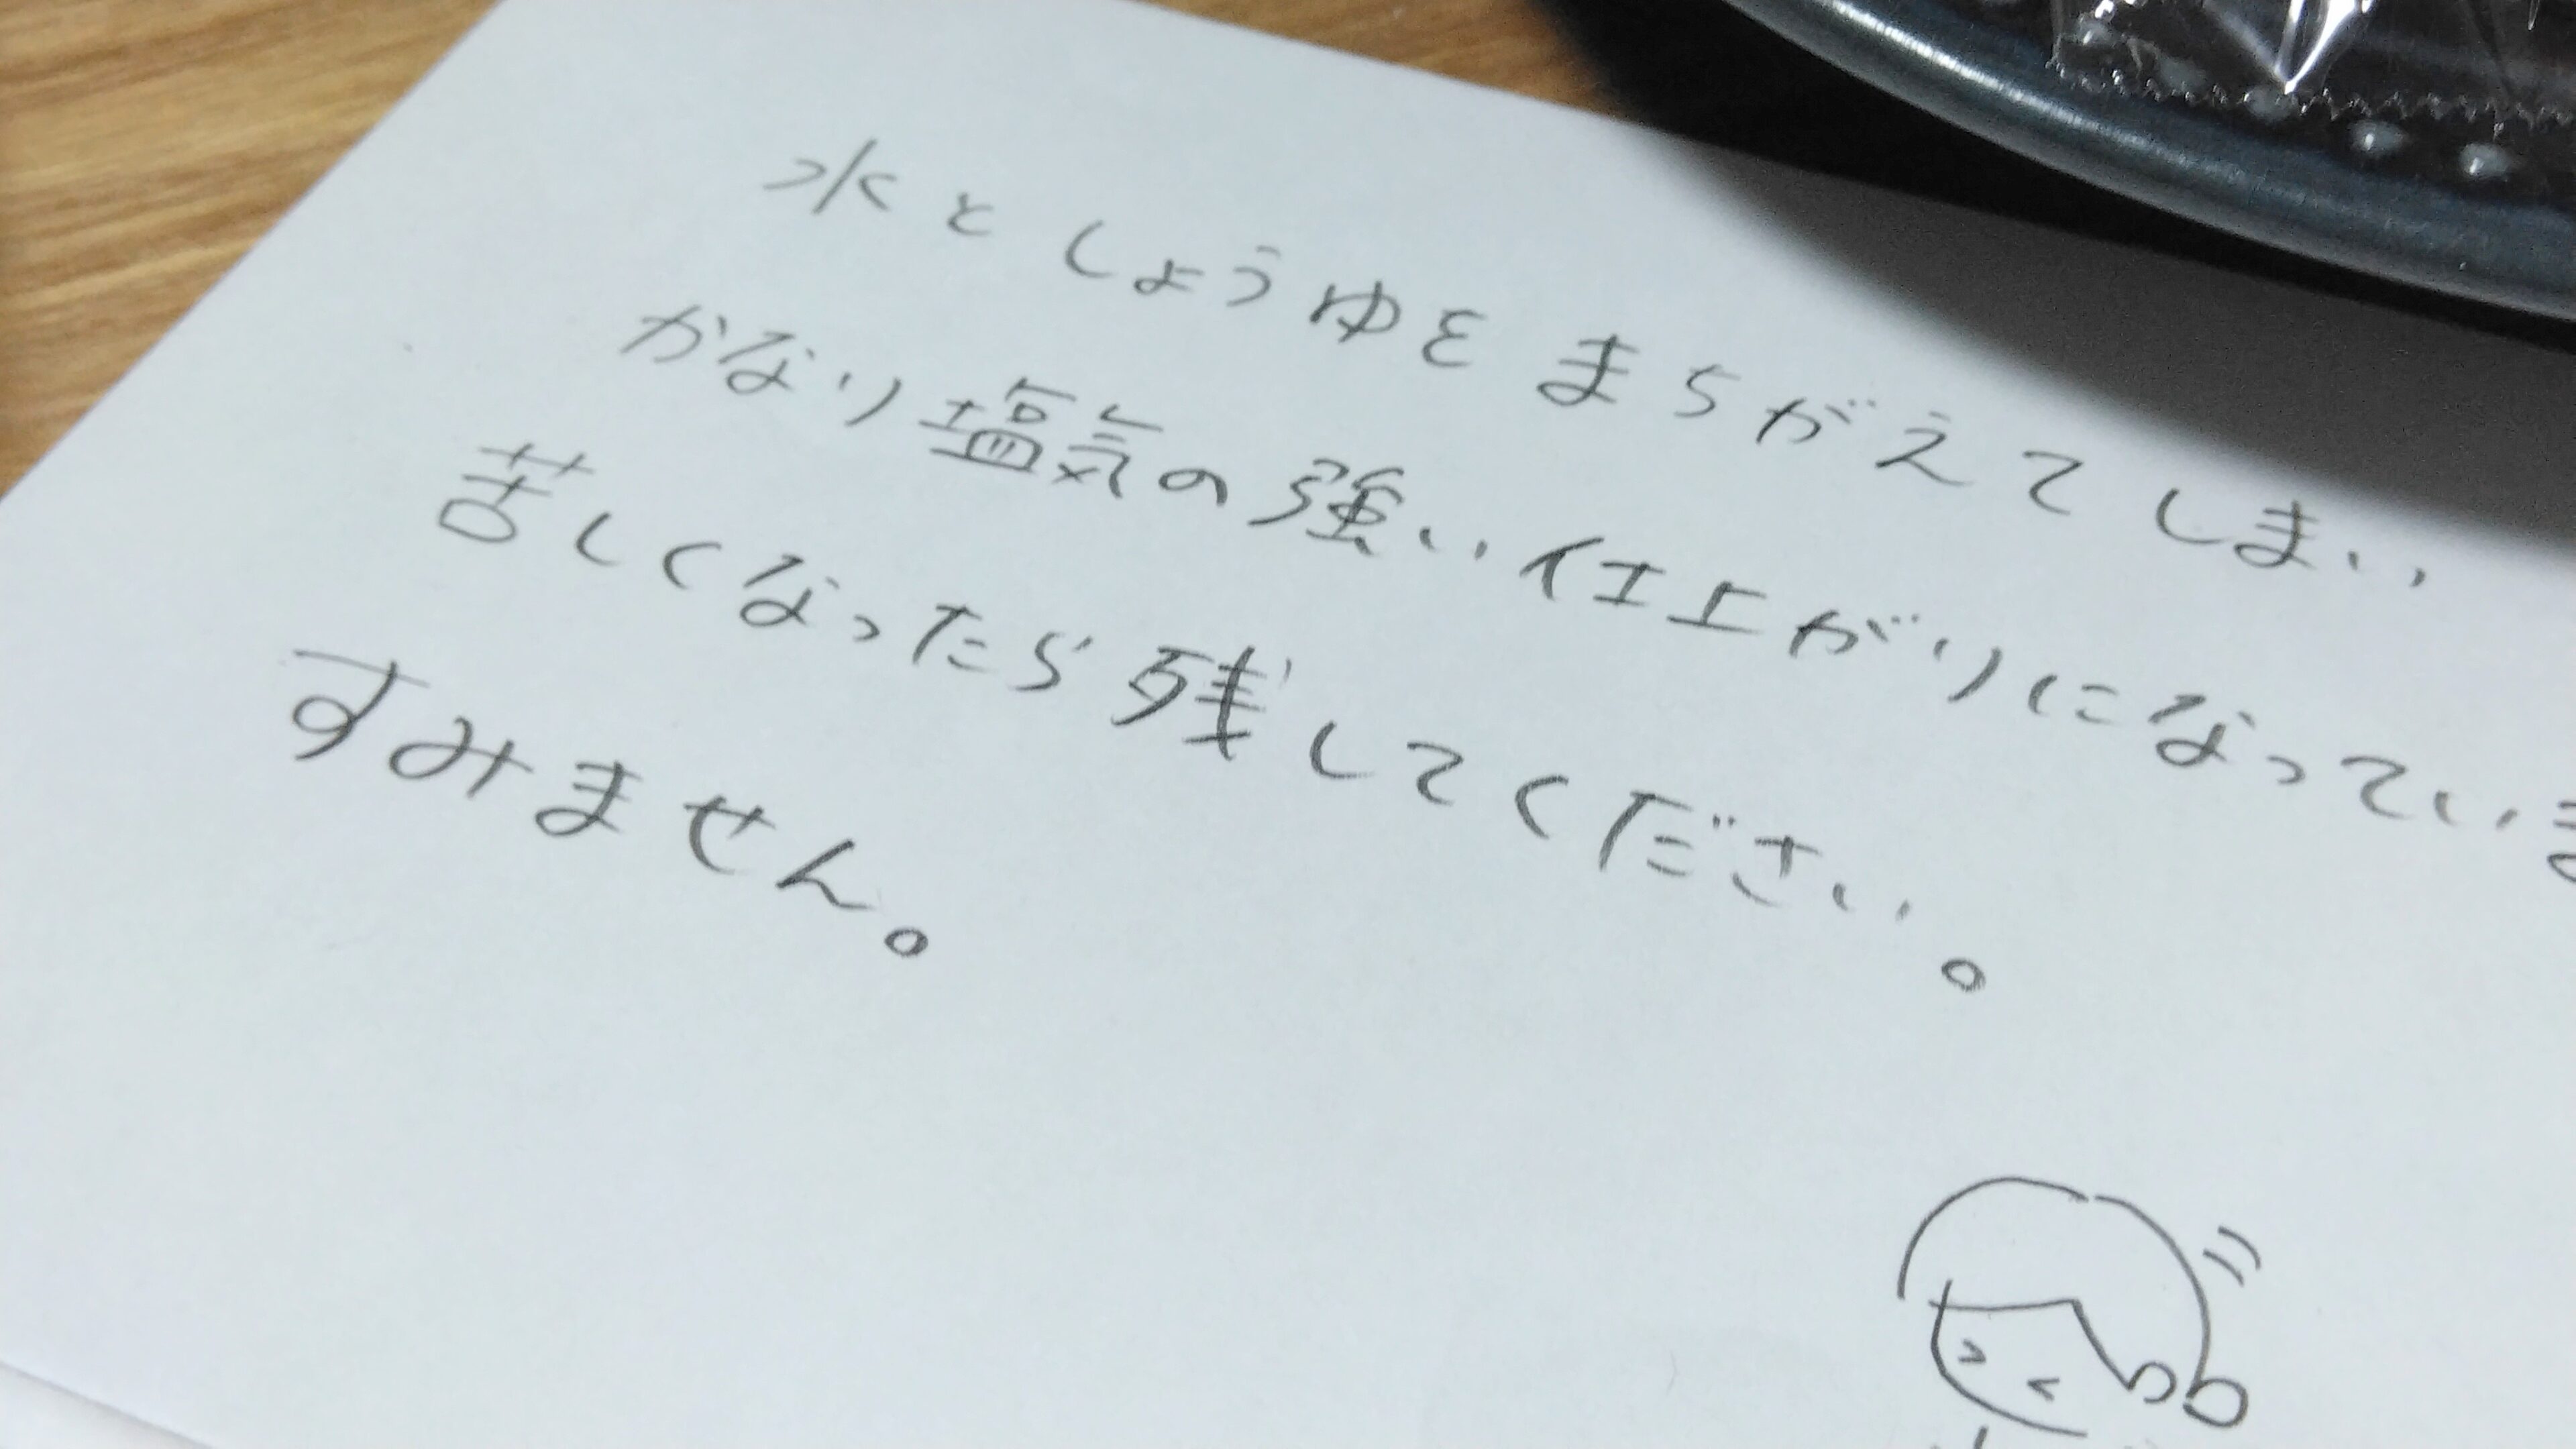 水としょうゆをまちがえてしまい
かなり塩気の強い仕上がりになっていま
苦しくなったら残してください。
すみません。